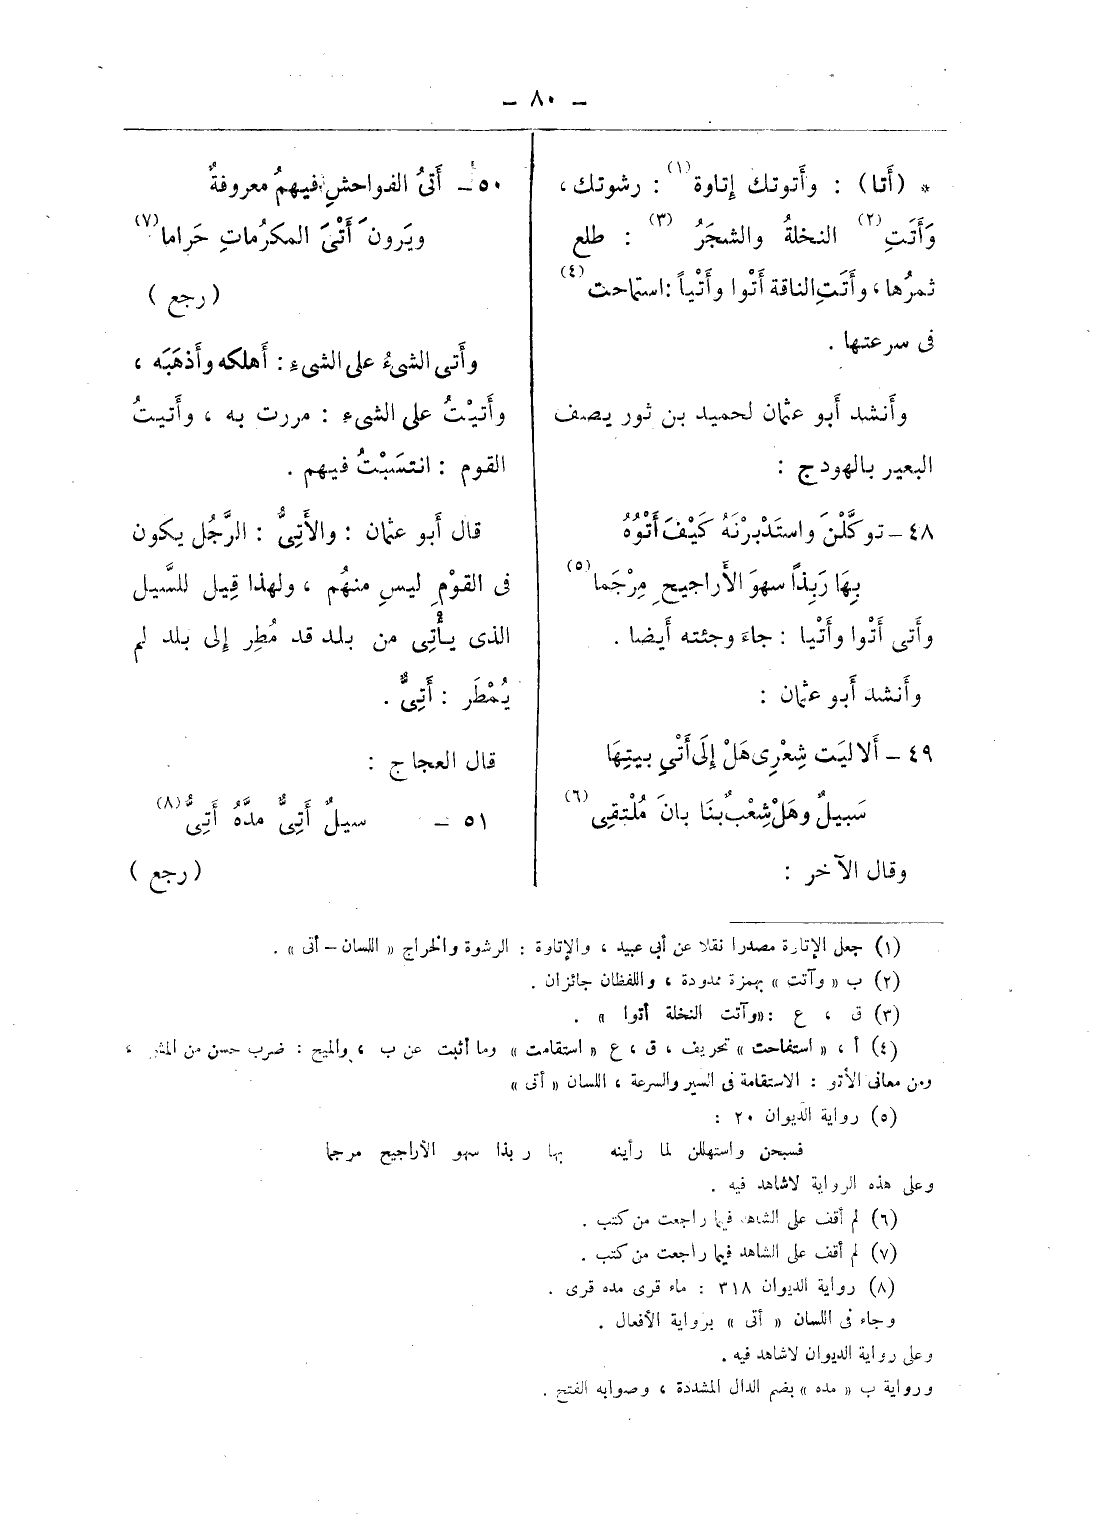 — ٨٠ —
* (أَتا) : وأَتوتك إتاوة(١) : رشوتك ،
وَأَتَتِ(٢) النخلةُ والشجَرُ(٣) : طلع
ثمرُها ، وأَتَتِ الناقة أَتْوا وأَتْياً : استماحت(٤)
فى سرعتها .
وأَنشد أَبو عثمان لحميد بن ثور يصف
البعير بالهودج :
٤٨ – توكَّلْنَ واستَدْبرْنَهُ كَيْفَ أَتْوُهُ
بِهَا رَبِذاً سهوَ الأَراجيحِ مِرْجَما(٥)
وأَتى أَتْوا وأَتْيا : جاءَ وجئته أَيضا .
وأَنشد أَبو عثمان :
٤٩ – أَلا ليَت شِعْرِى هَلْ إِلَى أَتْىِ بيتِهَا
سَبيلٌ وهَلْ شِعْبٌ بنَا بانَ مُلْتقِى(٦)
وقال الآخر :
٥٠ – أَتىُ الفواحشِ فيهمُ معروفةٌ
ويَرون أَتْىَ المكرُماتِ حَراما(٧)
( رجع )
وأَتى الشىءُ على الشىءِ : أَهلكه وأَذهَبَه ،
وأَتيْتُ على الشىء : مررت به ، وأَتيتُ
القوم : انتسَبْتُ فيهم .
قال أَبو عثمان : والأَتِىُّ : الرَّجُل يكون
فى القوْمِ ليس منهُم ، ولهذا قِيل للسَّيل
الذى يأْتِى من بلد قد مُطِر إلى بلد لم
يُمْطَر : أَتِىٌّ .
قال العجاج :
٥١ – سيلٌ أَتِىٌّ مدَّهُ أَتِىُّ(٨)
( رجع )
(١) جعل الإتارة مصدرا نقلا عن أبى عبيد ، والإتاوة : الرشوة والخراج « اللسان – أتى » .
(٢) ب « وآتت » بهمزة ممدودة ، واللفظان جائزان .
(٣) ق ، ع : « وآتت النخلة أتوا » .
(٤) أ ، « استفاحت » تحريف ، ق ، ع « استقامت » وما أثبت عن ب ، والميح : ضرب حسن من المشى ،
ومن معانى الأتو : الاستقامة فى السير والسرعة ، اللسان « أتى »
(٥) رواية الديوان ٢٠ :
فسبحن واستهللن لما رأينه بها ربذا سهو الأراجيح مرجما
وعلى هذه الرواية لاشاهد فيه .
(٦) لم أقف على الشاهد فيما راجعت من كتب .
(٧) لم أقف على الشاهد فيما راجعت من كتب .
(٨) رواية الديوان ٣١٨ : ماء قرى مده قرى .
وجاء فى اللسان « أتى » برواية الأفعال .
وعلى رواية الديوان لاشاهد فيه .
ورواية ب « مده » بضم الدال المشددة ، وصوابه الفتح .